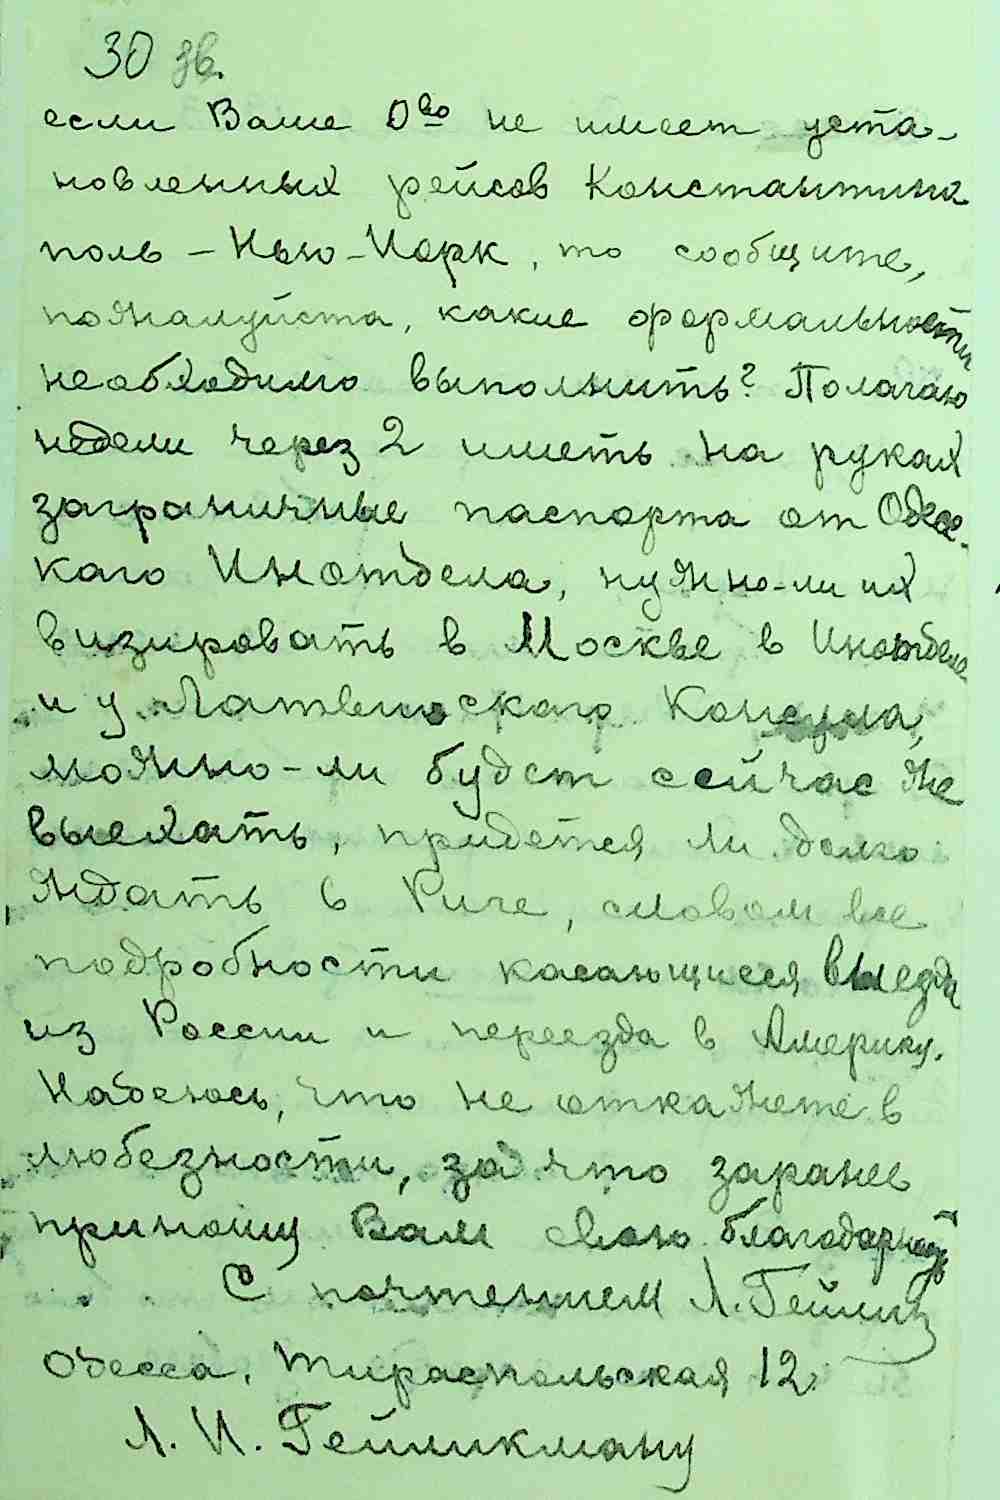 30 зв.
если Ваше О-во не имеет уста-
новленных рейсов Константино
поль - Нью-Иорк, то сообщите,
пожалуйста, какие формальности
необходимо выполнить? Полагаю
недели через 2 иметь на руках
заграничные паспорта от Одес-
каго Инотдела, нужно-ли их
визировать в Москве в Инотделе
и у Латвийскаго Консула,
можно-ли будет сейчас же
выехать, придется ли долго
ждать в Риге, словом все
подробности касающиеся выезда
из России и переезда в Америку.
Надеюсь, что не откажете в
любезности, за что заранее
приношу Вам свою благодарность
С почтением Л. Гейлик
Одесса, Тираспольская 12
Л. И. Гейликману